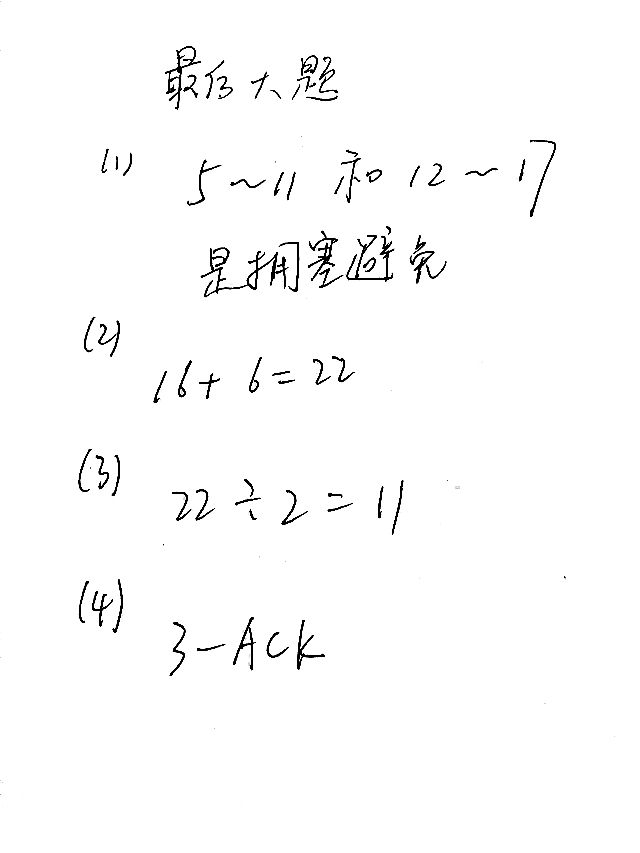 最后大题
(1) 5~11 和 12~17
是拥塞避免
(2)
16+6=22
(3)
22÷2=11
(4)
3-ACK